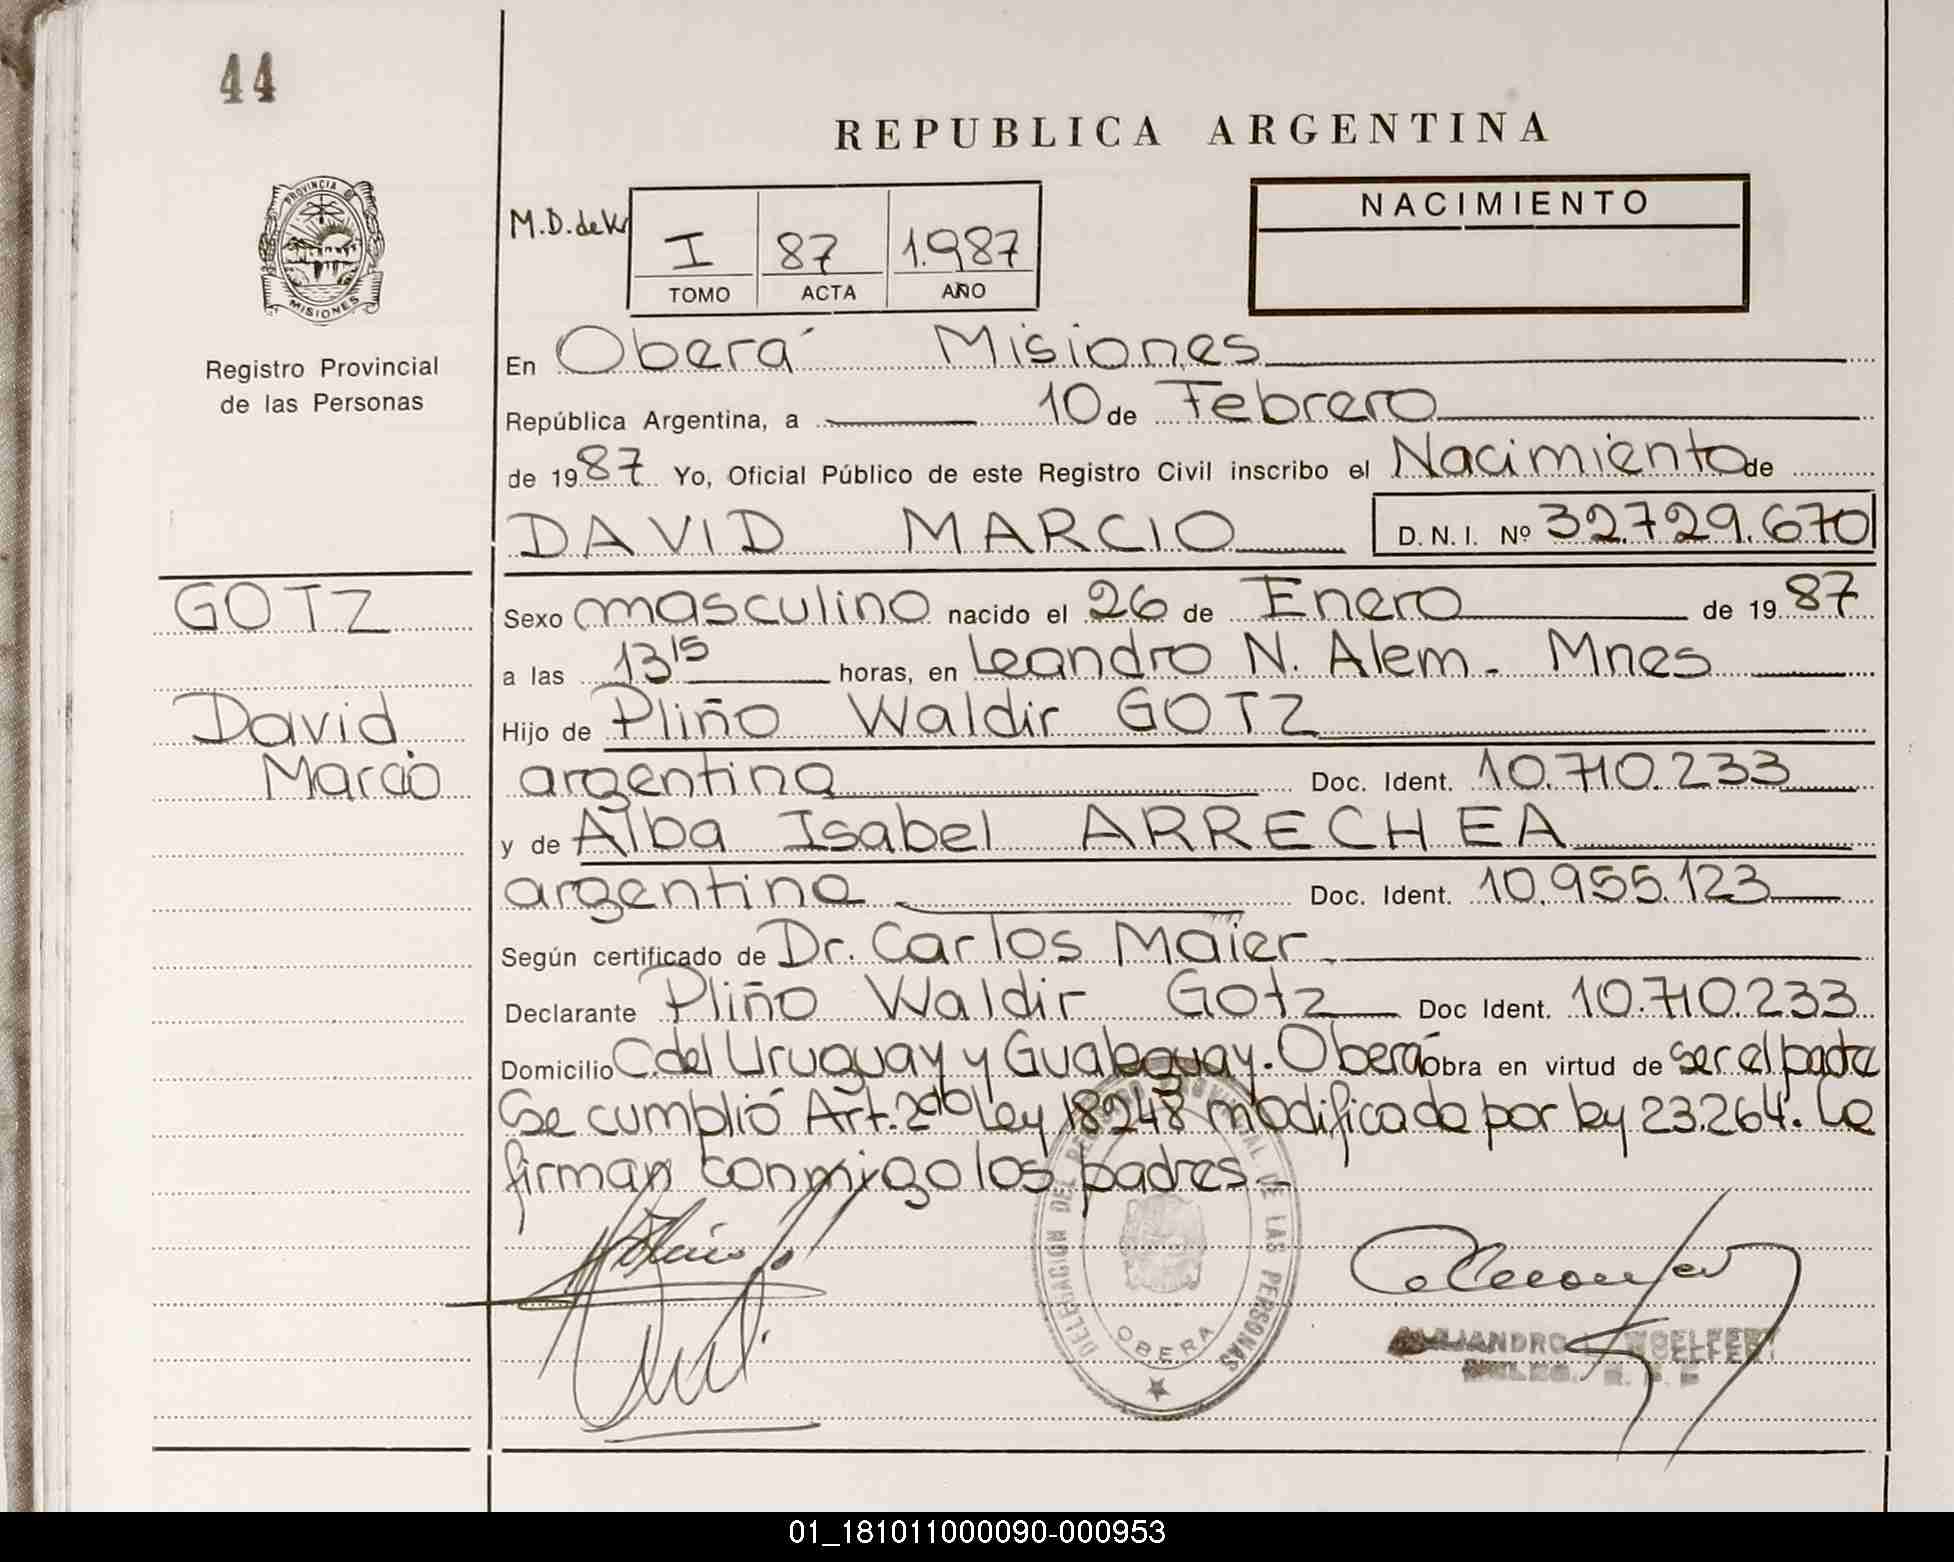 44
REPUBLICA ARGENTINA
PROVINCIA DE
MISIONES
Registro Provincial
de las Personas
M.D.deKr
I 87 1.987
TOMO ACTA AÑO
NACIMIENTO
En Oberá Misiones
República Argentina, a 10 de Febrero
de 1987 Yo, Oficial Público de este Registro Civil inscribo el Nacimiento de
DAVID MARCIO D.N.I. Nº 32.729.670
GOTZ
David
Marcio
Sexo masculino nacido el 26 de Enero de 1987
a las 13 15 horas, en Leandro N. Alem - Mnes
Hijo de Pliño Waldir GOTZ
argentina Doc. Ident. 10.710.233
y de Alba Isabel ARRECHEA
argentina Doc. Ident. 10.955.123
Según certificado de Dr. Carlos Maier
Declarante Pliño Waldir Gotz Doc Ident. 10.710.233
Domicilio C.del Uruguay y Gualeguay. Oberá Obra en virtud de ser el padre
Se cumplió Art. 2do Ley 18248 modificada por ley 23.264. Le
firman conmigo los padres.-
DELEGACION DEL REGISTRO PROVINCIAL DE LAS PERSONAS
OBERA
ALEJANDRO WOELFERT
01_181011000090-000953